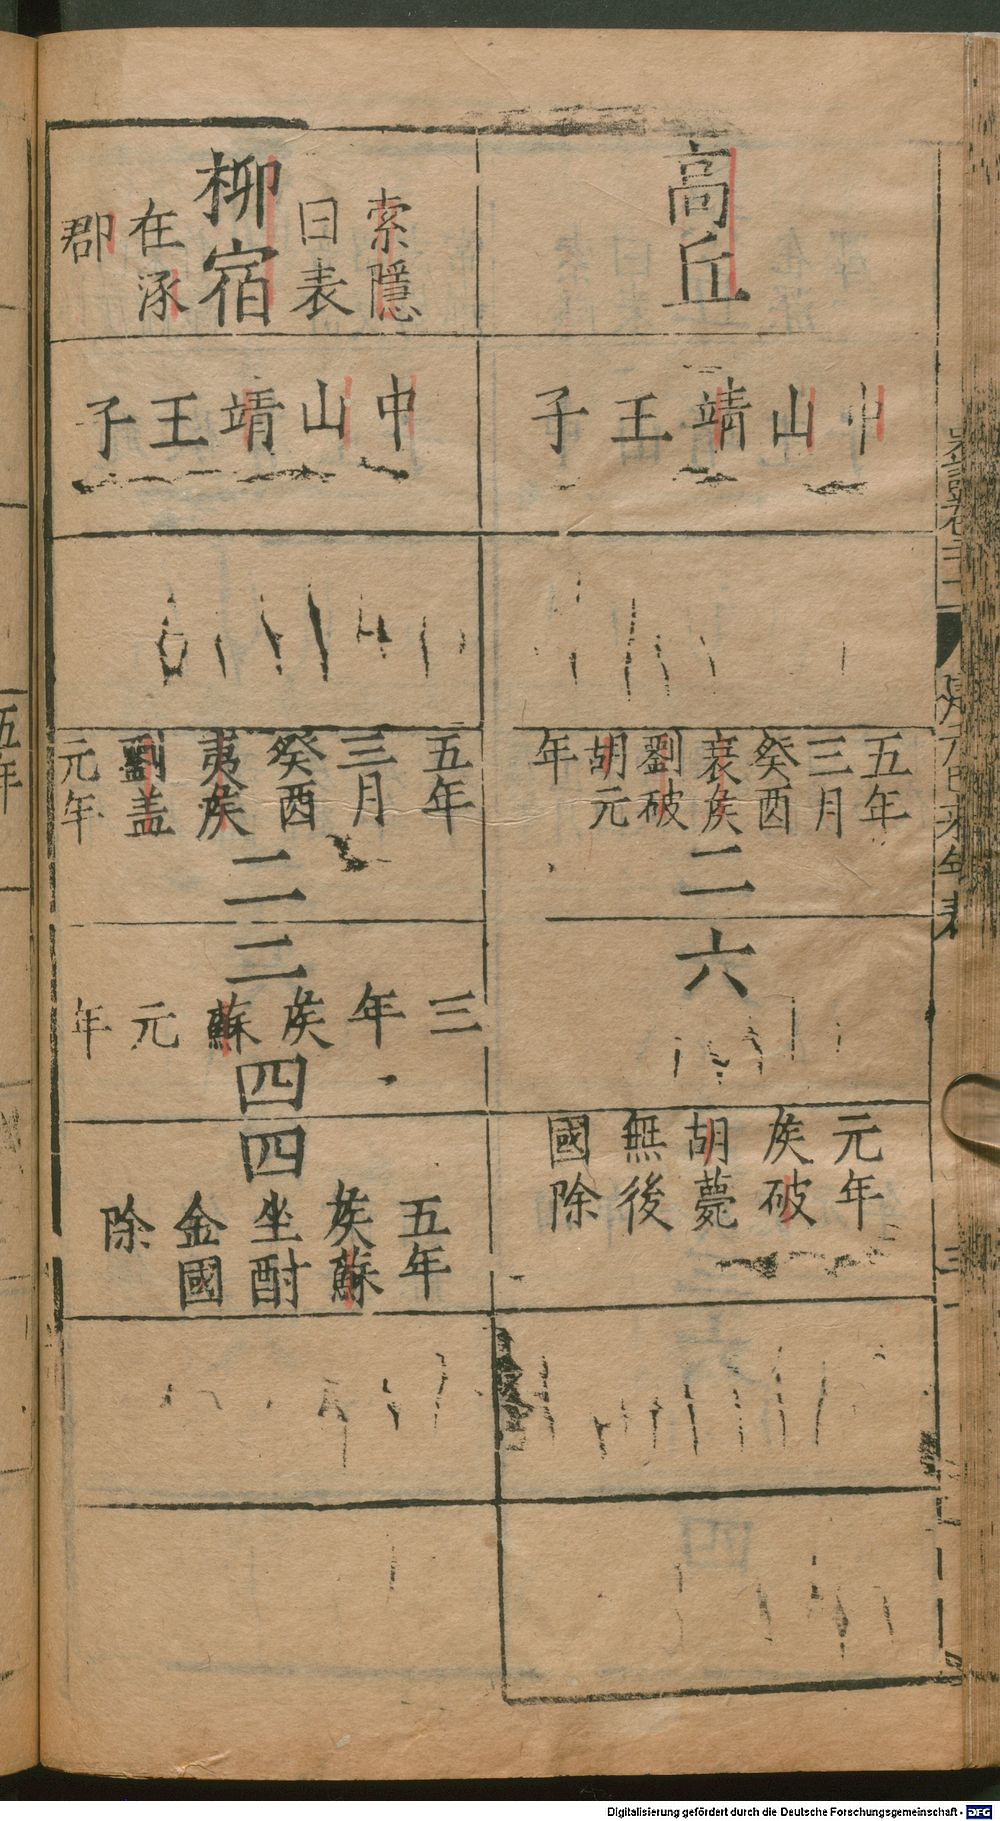 高丘
中山靖王子
五年
三月
癸酉
哀矦
劉破
胡元
年
二
六
元年
矦破
胡薨
無後
國除
索隱
曰表
柳宿
在涿
郡
中山靖王子
五年
三月
癸酉
夷矦
劉盖
元年
二
二
三年矦蘇元年
四
四
五年
矦蘇
坐酎
金國
除
五年
Digitalisierung gefördert durch die Deutsche Forschungsgemeinschaft - DFG